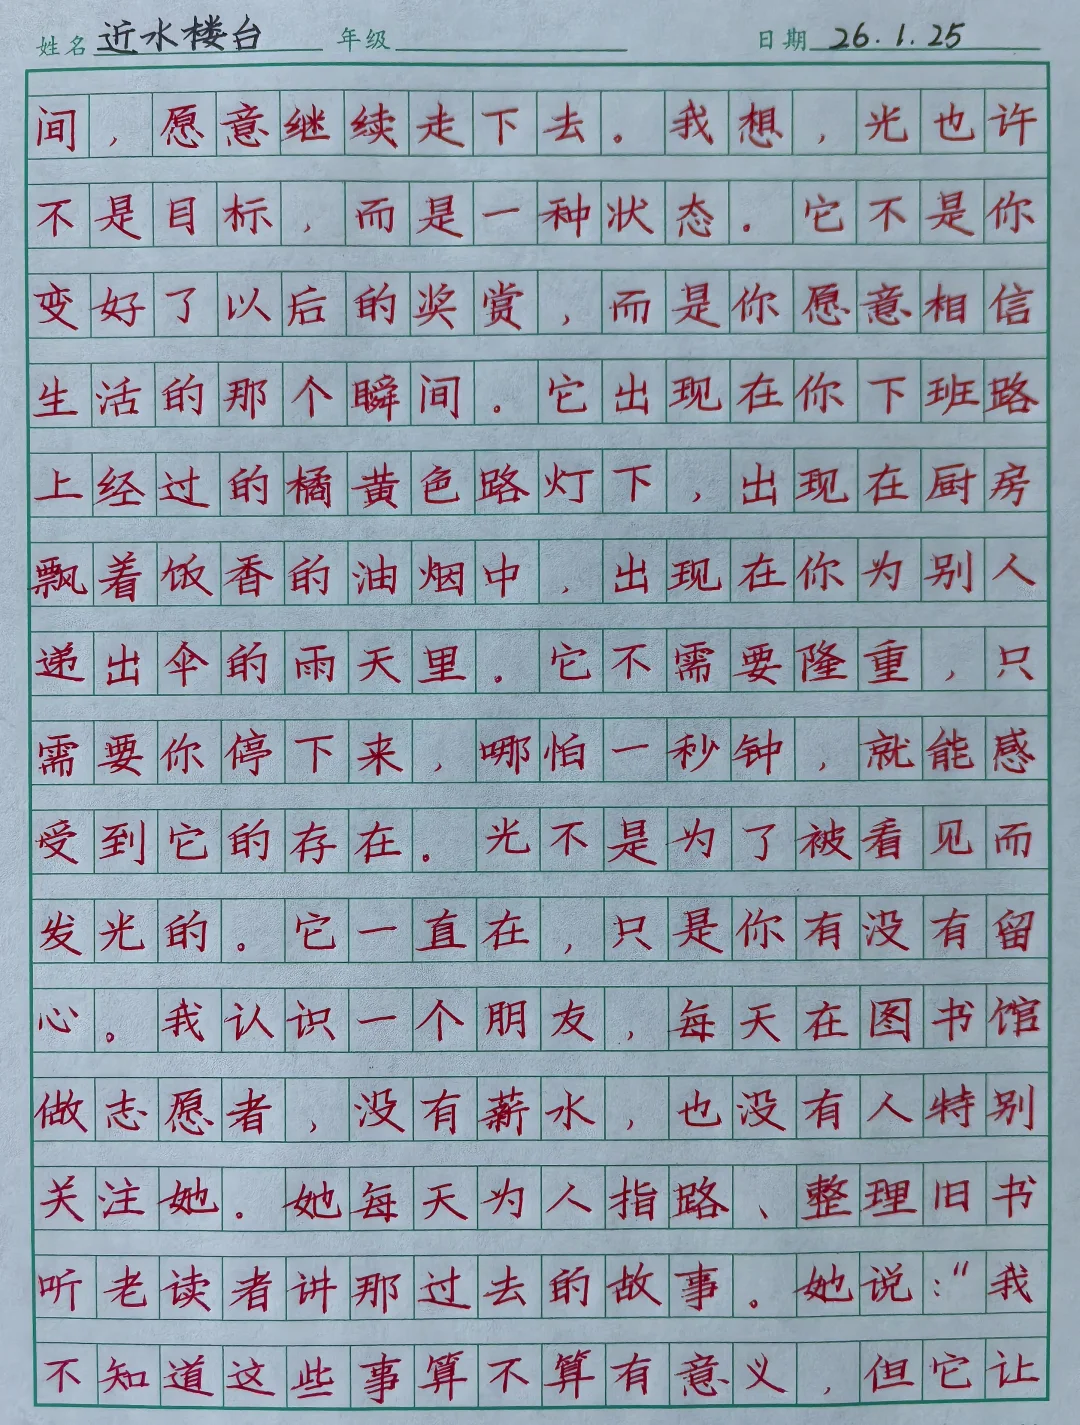 姓名 近水楼台 年级 日期 26.1.25
间，愿意继续走下去。我想，光也许
不是目标，而是一种状态。它不是你
变好了以后的奖赏，而是你愿意相信
生活的那个瞬间。它出现在你下班路
上经过的橘黄色路灯下，出现在厨房
飘着饭香的油烟中，出现在你为别人
递出伞的雨天里。它不需要隆重，只
需要你停下来，哪怕一秒钟，就能感
受到它的存在。光不是为了被看见而
发光的。它一直在，只是你有没有留
心。我认识一个朋友，每天在图书馆
做志愿者，没有薪水，也没有人特别
关注她。她每天为人指路、整理旧书
听老读者讲那过去的故事。她说：“我
不知道这些事算不算有意义，但它让